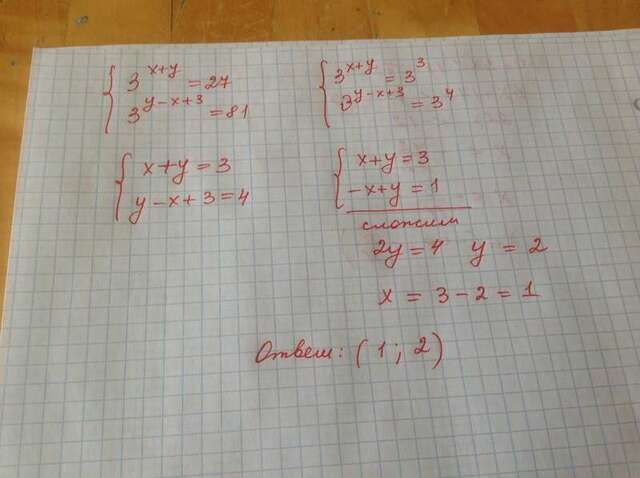 { 3^{x+y} = 27
3^{y-x+3} = 81
{ 3^{x+y} = 3^3
3^{y-x+3} = 3^4
{ x+y=3
y-x+3=4
{ x+y=3
-x+y=1
сложим
2y=4 y=2
x = 3-2=1
Ответ: (1; 2)